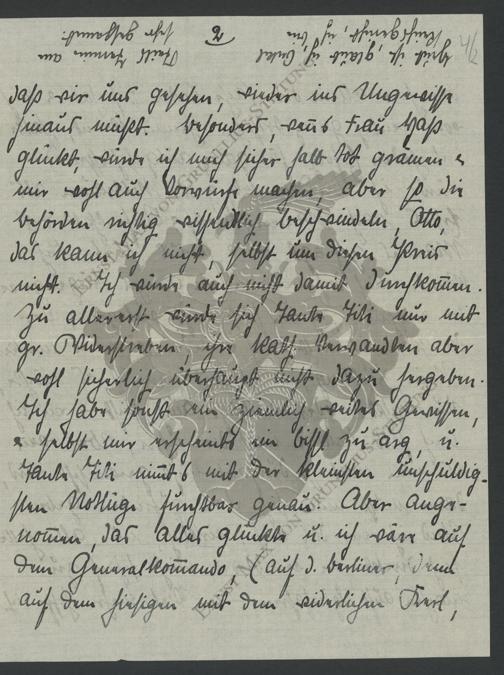 2
4/2
daß wir uns gesehen, wieder ins Ungewisse
hinaus müßt. Besonders, wenns Frau Haß
glückt, würde ich mich sicher halb tot grämen u
mir wohl auch Vorwürfe machen, aber so die
behörden richtig wissentlich beschwindeln, Otto,
das kann ich nicht, selbst um diesen Preis
nicht. Ich würde auch nicht damit durchkom̅en.
Zu allererst würde sich Tante Titi nur mit
gr. Widerstreben, ihre kath. Verwandten aber
wohl sicherlich überhaupt nicht dazu hergeben.
Ich habe sonst ein ziemlich weites Gewissen,
selbst mir erscheints ein bißl zu arg, u.
Tante Titi nim̅t's mit der kleinsten unschuldig-
sten Notlüge furchtbar genau. Aber ange-
nom̅en, das alles glückte u. ich wäre auf
dem Generalkom̅ando (auf d. berliner, denn
auf dem hiesigen mit dem widerlichen Kerl,